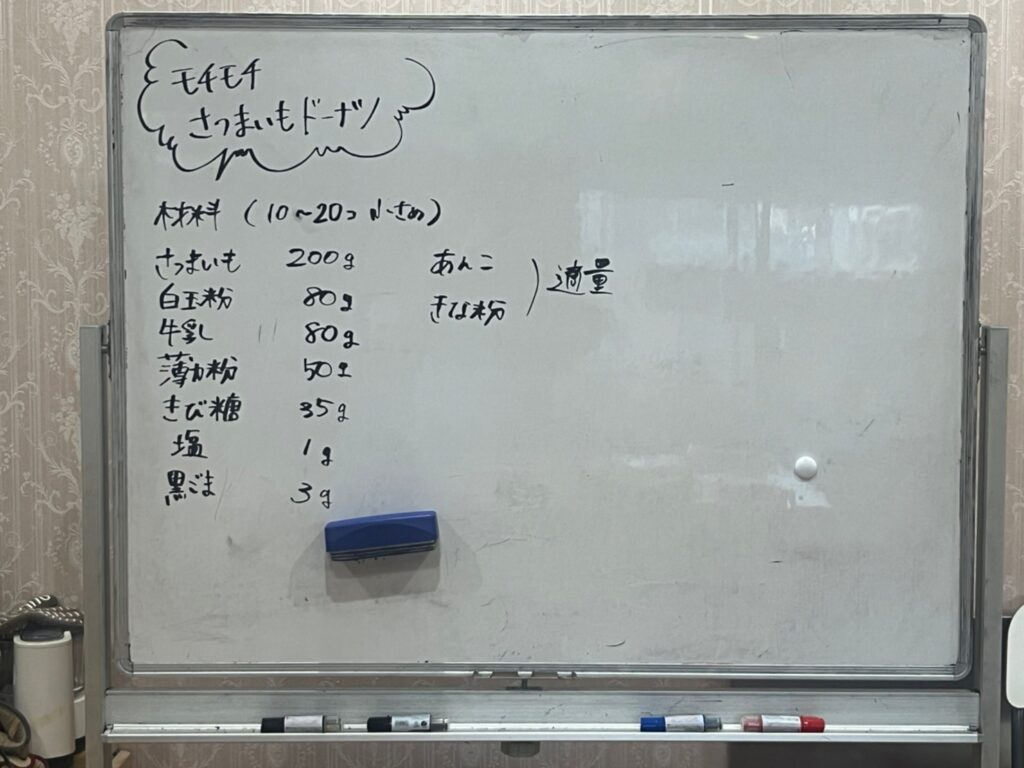 モチモチ
さつまいもドーナツ
材料 (10〜20コ 小さめ)
さつまいも 200g
白玉粉 80g
牛乳 80g
薄力粉 50g
きび糖 35g
塩 1g
黒ごま 3g
あんこ
きな粉
) 適量